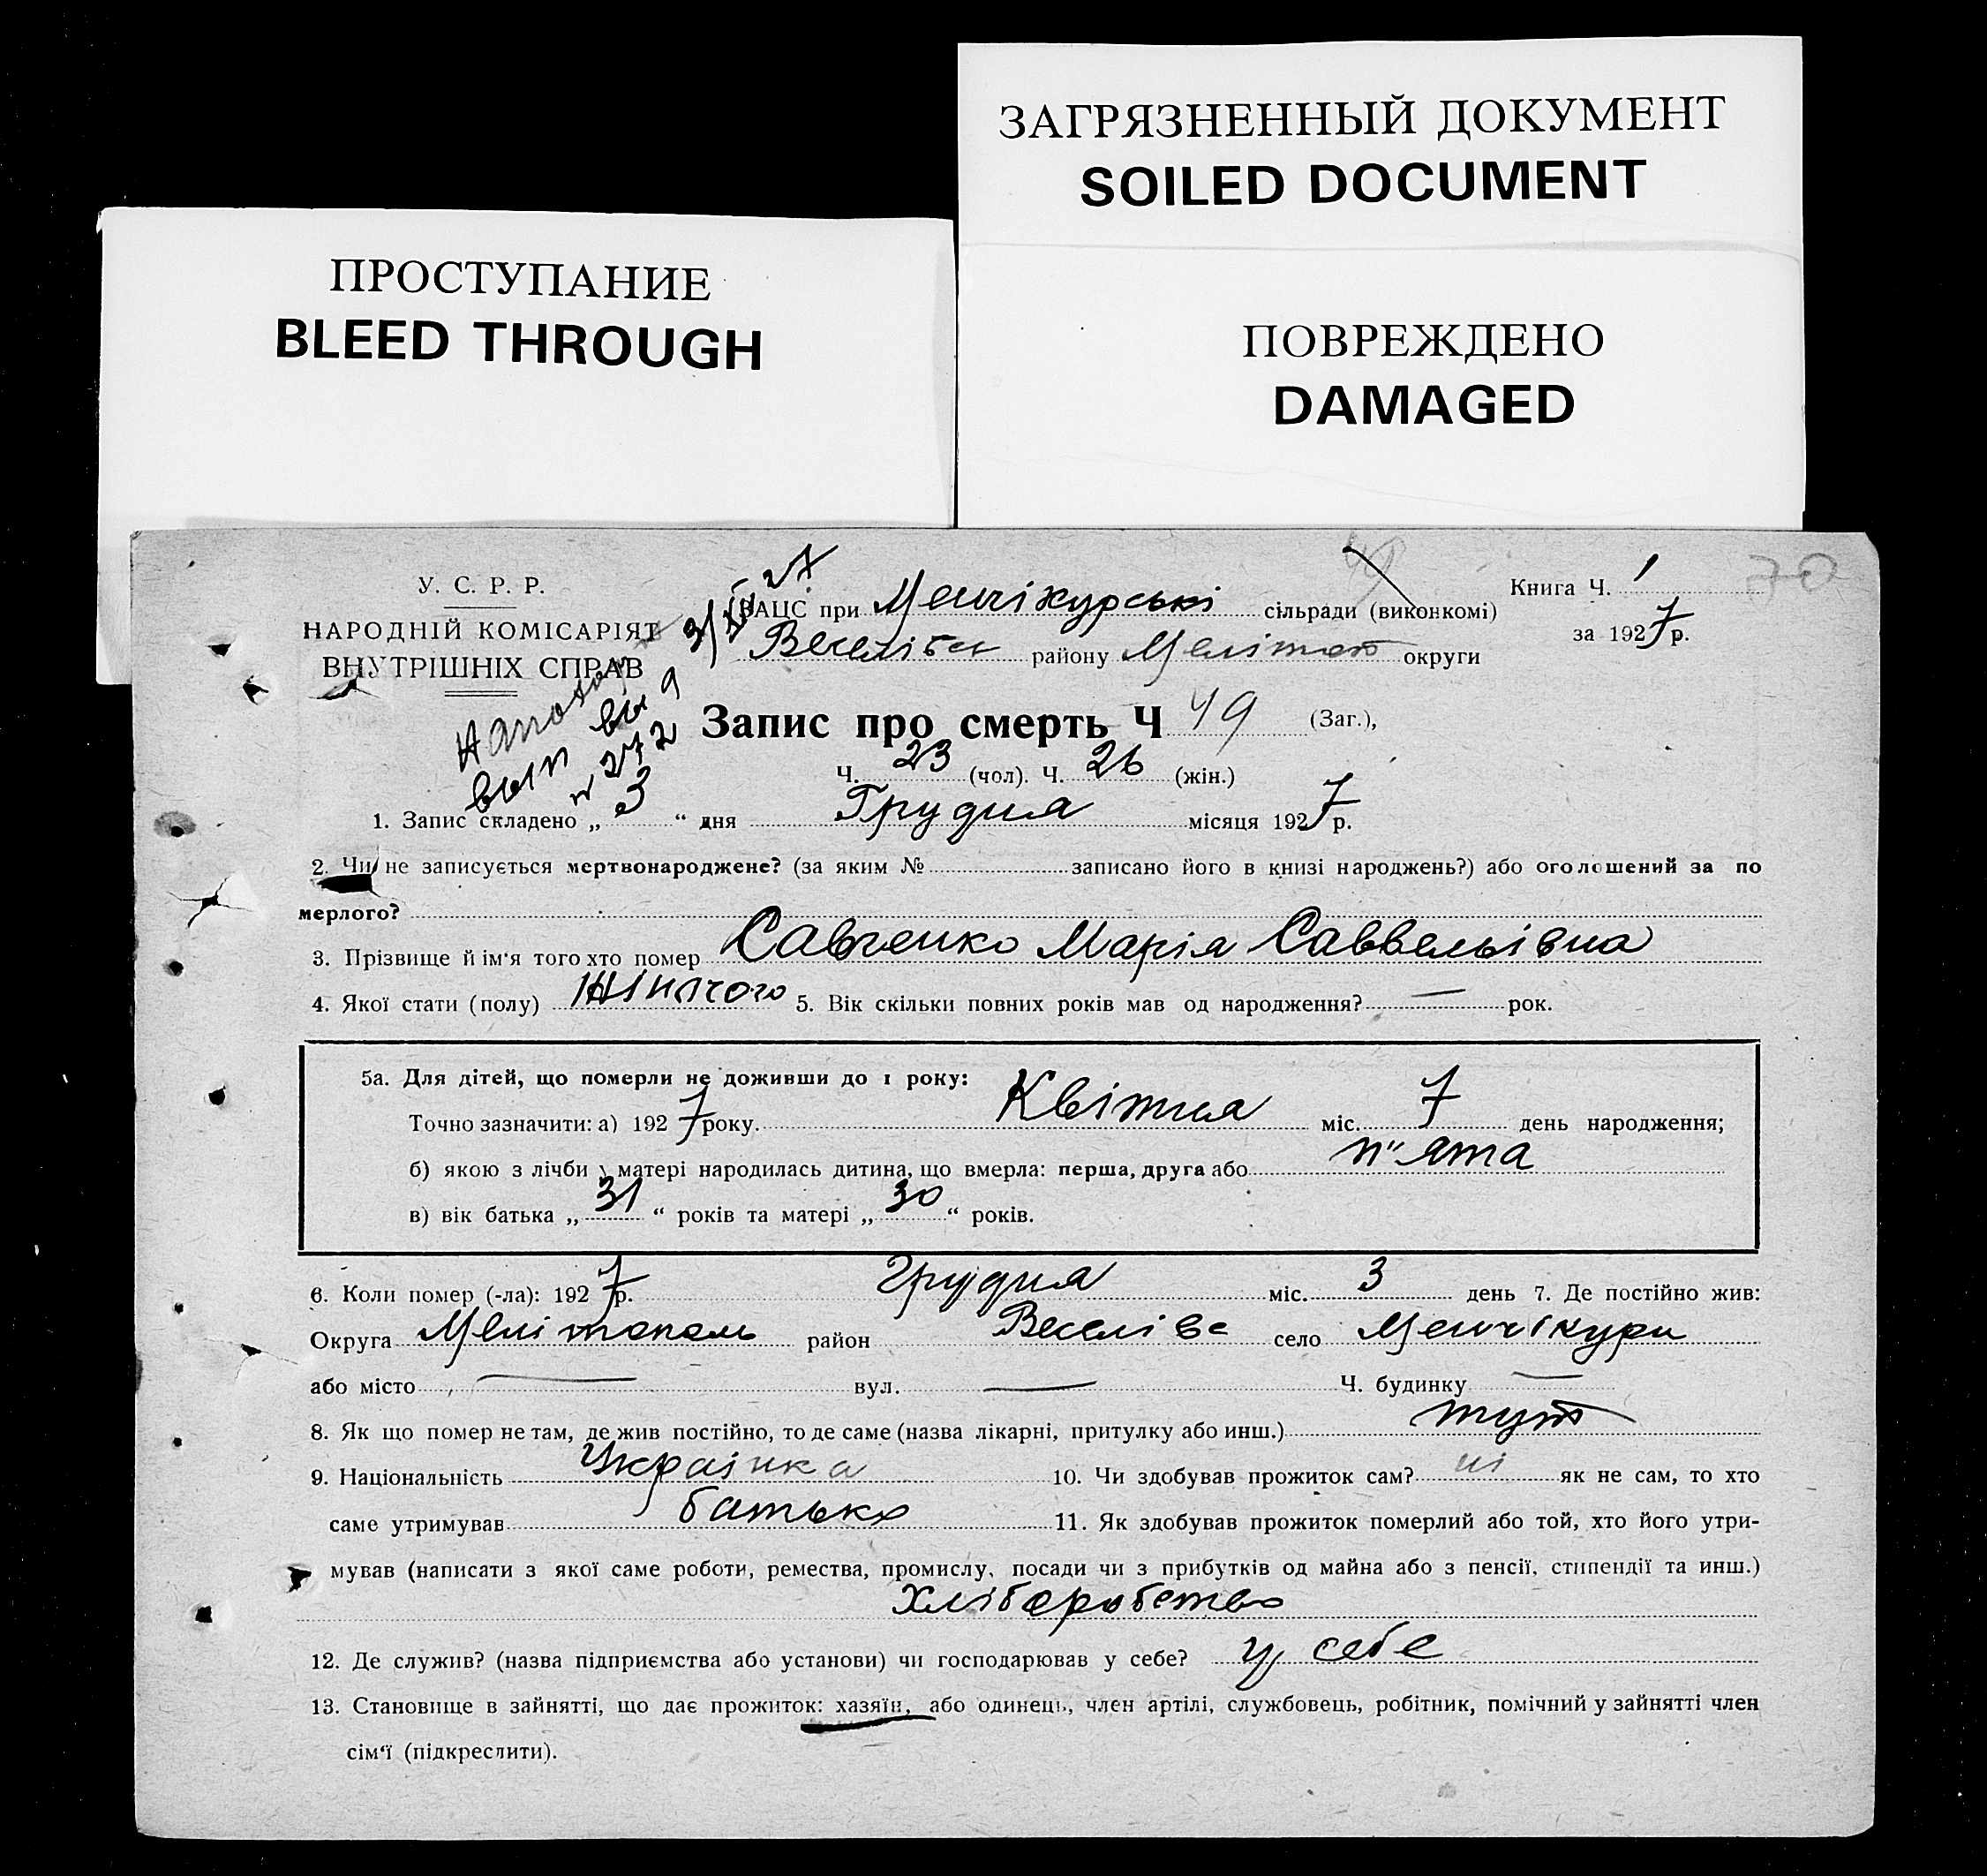 ЗАГРЯЗНЕННЫЙ ДОКУМЕНТ
SOILED DOCUMENT
ПРОСТУПАНИЕ
BLEED THROUGH
ПОВРЕЖДЕНО
DAMAGED
70
У. С. Р. Р.
НАРОДНІЙ КОМІСАРІЯТ
ВНУТРІШНІХ СПРАВ
ЗАЦС при Менчікурські сільради (виконкомі)
Веселівськ району Меліто округи
Книга Ч. 1
за 1927 р.
3/XII 27
вып
№ 272
Запис про смерть Ч 49 (Заг.),
Ч. 23 (чол). Ч. 26 (жін.)
1. Запис складено „ 3 “ дня Грудня місяця 1927 р.
2. Чи не записується мертвонароджене? (за яким № записано його в книзі народжень?) або оголошений за по
мерлого?
3. Прізвище й ім‘я того хто помер Савченко Марія Саввельівна
4. Якої стати (полу) Жіночого 5. Вік скільки повних років мав од народження? — рок.
5а. Для дітей, що померли не доживши до 1 року:
Точно зазначити: а) 1927 року. Квітня міс. 7 день народження;
б) якою з лічби у матері народилась дитина, що вмерла: перша, друга або п"ята
в) вік батька „ 31 “ років та матері „ 30 “ років.
6. Коли помер (-ла): 1927 р. грудня міс. 3 день 7. Де постійно жив:
Округа Мелітополь район Веселівс село Менчікури
або місто — вул. — Ч. будинку —
8. Як що помер не там, де жив постійно, то де саме (назва лікарні, притулку або инш.) тут
9. Національність Українка 10. Чи здобував прожиток сам? ні як не сам, то хто
саме утримував батько 11. Як здобував прожиток померлий або той, хто його утри-
мував (написати з якої саме роботи, ремества, промислу, посади чи з прибутків од майна або з пенсії, стипендії та инш.)
Хліборобство
12. Де служив? (назва підприємства або установи) чи господарював у себе? у себе
13. Становище в зайнятті, що дає прожиток: хазяїн, або одинець, член артілі, службовець, робітник, помічний у зайнятті член
сім‘ї (підкреслити).